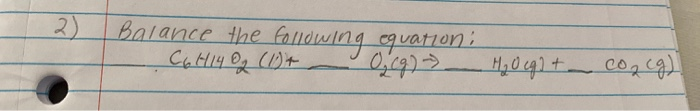 2) Balance the following equation:
__ C6H14O2 (l) + __ O2(g) → __ H2O(g) + __ CO2(g)